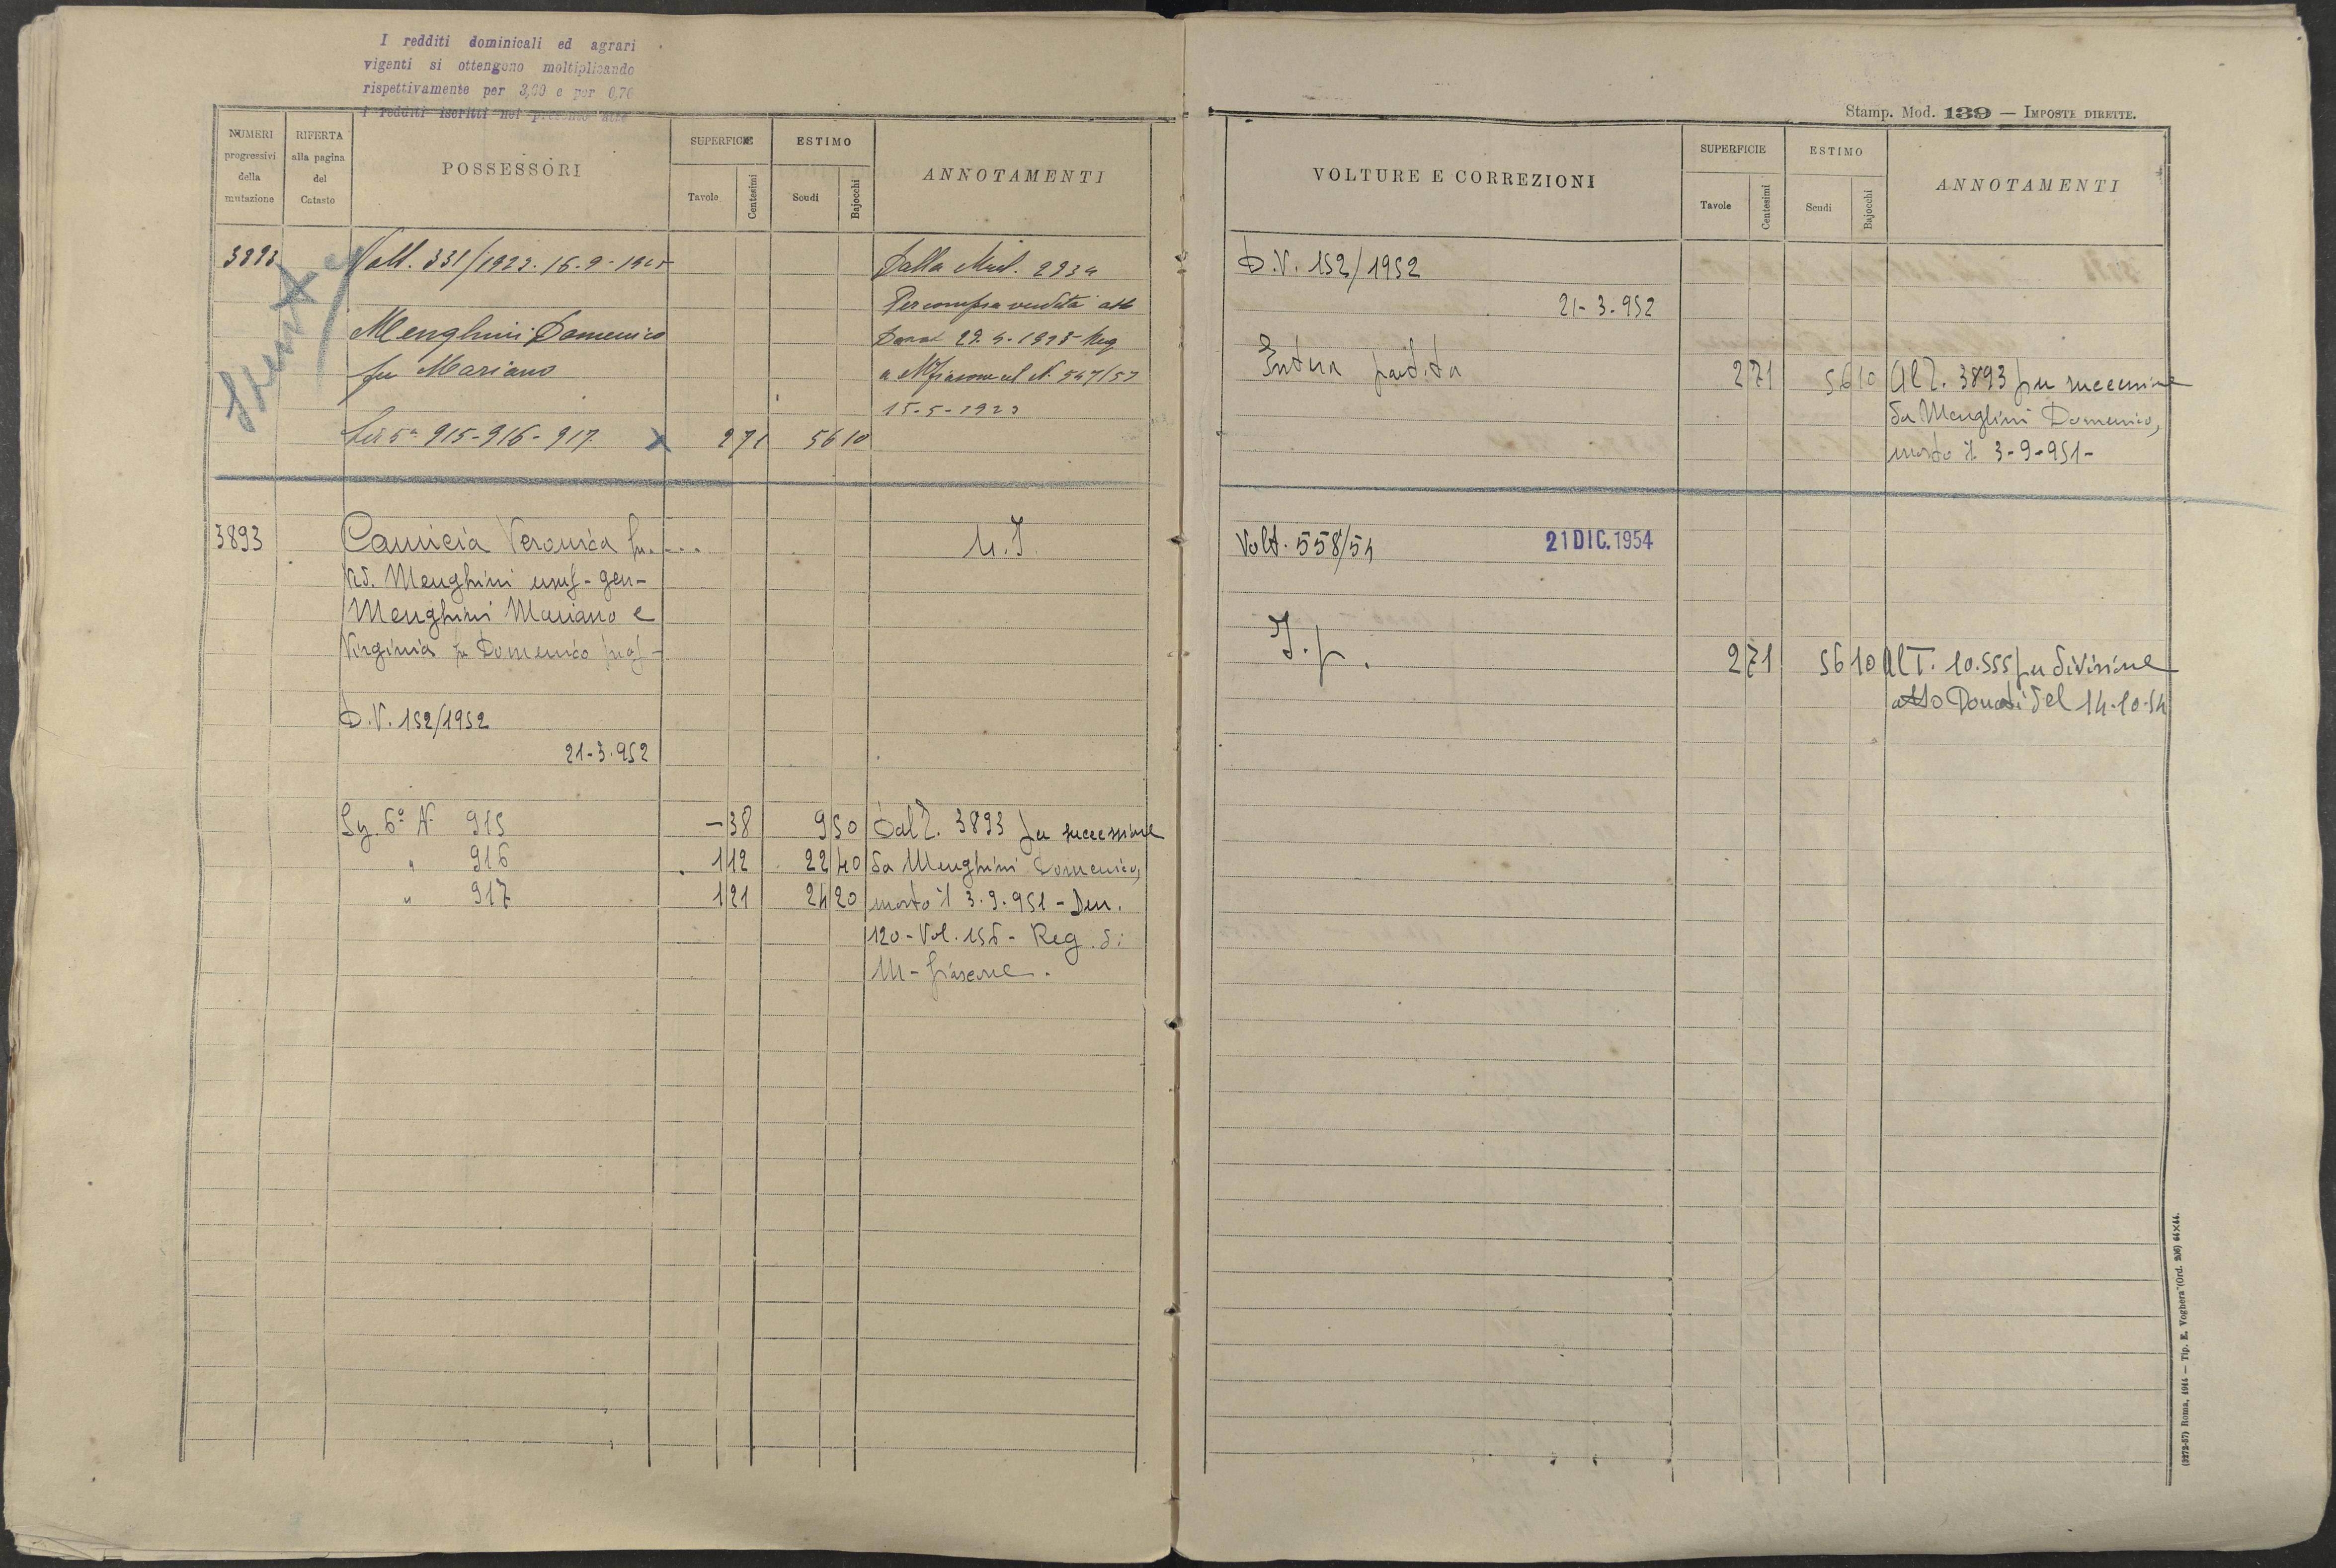 I redditi dominicali ed agrari
vigenti si ottengono moltiplicando
rispettivamente per 3,00 e per 0,70
i redditi iscritti nel presente atto
NUMERI progressivi della mutazione
RIFERTA alla pagina del Catasto
POSSESSORI
SUPERFICIE
Tavole
Centesimi
ESTIMO
Scudi
Bajocchi
ANNOTAMENTI
3893 Volt. 331/1923. 16-9-19 Dalla Mut.
Per compra vendita atto
Menghini Domenico
fu Mariano
a Mfiascone al N. 547/57
15-5-1923
Sez 5ª 915-916-917. X 2 71 56 10
3893 Camicia Veronica fu... N.I.
Ved. Menghini usuf-gen-
Menghini Mariano e
Virginia fu Domenico prop-
D.V. 152/1952
21-3.952
915 -38 9 50 Dal T. 3893 per successione
" 916 1 12 22 40 da Menghini Domenico,
" 917 1 21 24 20 morto il 3.9.951 - Den.
120 - Vol. 156 - Reg. di
M-fiascone.
Stamp. Mod. 139 — IMPOSTE DIRETTE.
VOLTURE E CORREZIONI
SUPERFICIE
Tavole
Centesimi
ESTIMO
Scudi
Bajocchi
ANNOTAMENTI
D.V. 152/1952
21-3.952
Intera partita 2 71 56 10 Al T. 3893 per successione
da Menghini Domenico,
morto il 3-9-951-
Volt. 558/54 21 DIC. 1954
I.p. 2 71 56 10 Al T. 10.555 per divisione
atto Donati del 14-10-54
(3272-57) Roma, 1914 — Tip. E. Voghera (Ord. 206) 64×44.